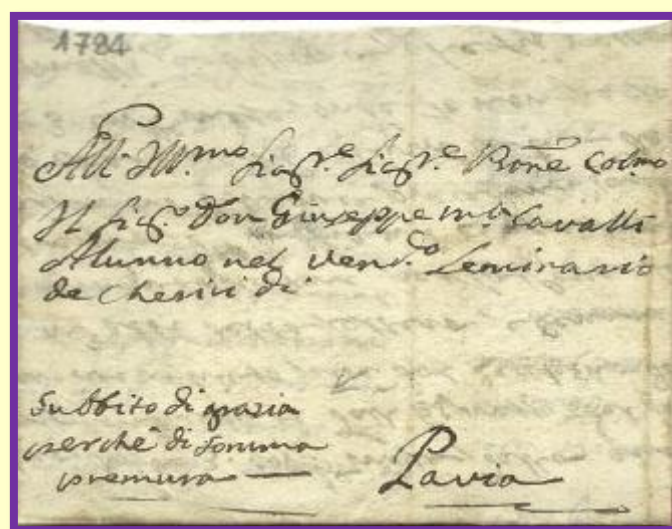 1784
All Ill.mo Sig.re Sig.re Pñe Col.mo
Il Sig.r Don Giuseppe m.a Cavalli
Alunno nel Ven.do Seminario
de Cherici di
Subbito di grazia
perchè di somma
premura
Pavia